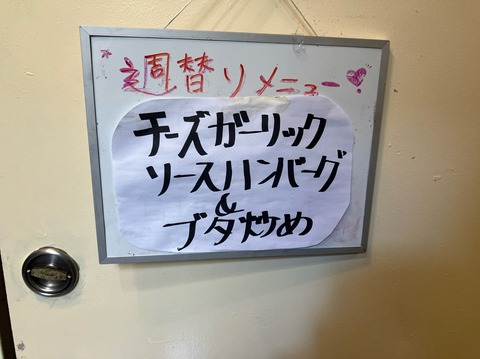 週替りメニュー
チーズガーリック
ソースハンバーグ
&
ブタ炒め